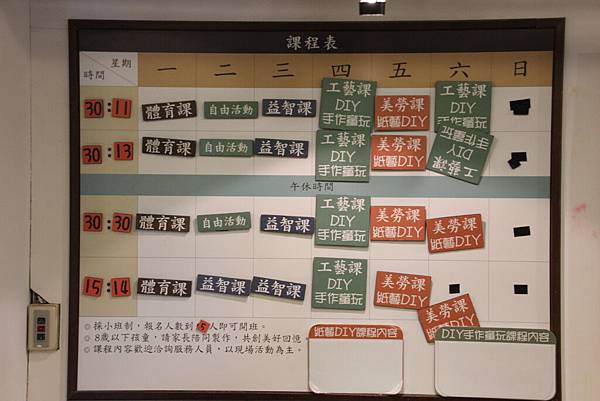 課程表
星期
時間
一 二 三 四 五 六 日
30:11 體育課 自由活動 益智課 工藝課 DIY 手作童玩 美勞課 紙藝DIY 工藝課 DIY 手作童玩
30:13 體育課 自由活動 益智課 工藝課 DIY 手作童玩 美勞課 紙藝DIY 工藝課 DIY 手作童玩
午休時間
30:30 體育課 自由活動 益智課 工藝課 DIY 手作童玩 美勞課 紙藝DIY 美勞課 紙藝DIY
15:14 體育課 益智課 益智課 工藝課 DIY 手作童玩 美勞課 紙藝DIY 美勞課 紙藝DIY
◎採小班制，報名人數到5人即可開班。
◎8歲以下孩童，請家長陪同製作，共創美好回憶。
◎課程內容歡迎洽詢服務人員，以現場活動為主。
紙藝DIY課程內容
DIY手作童玩課程內容